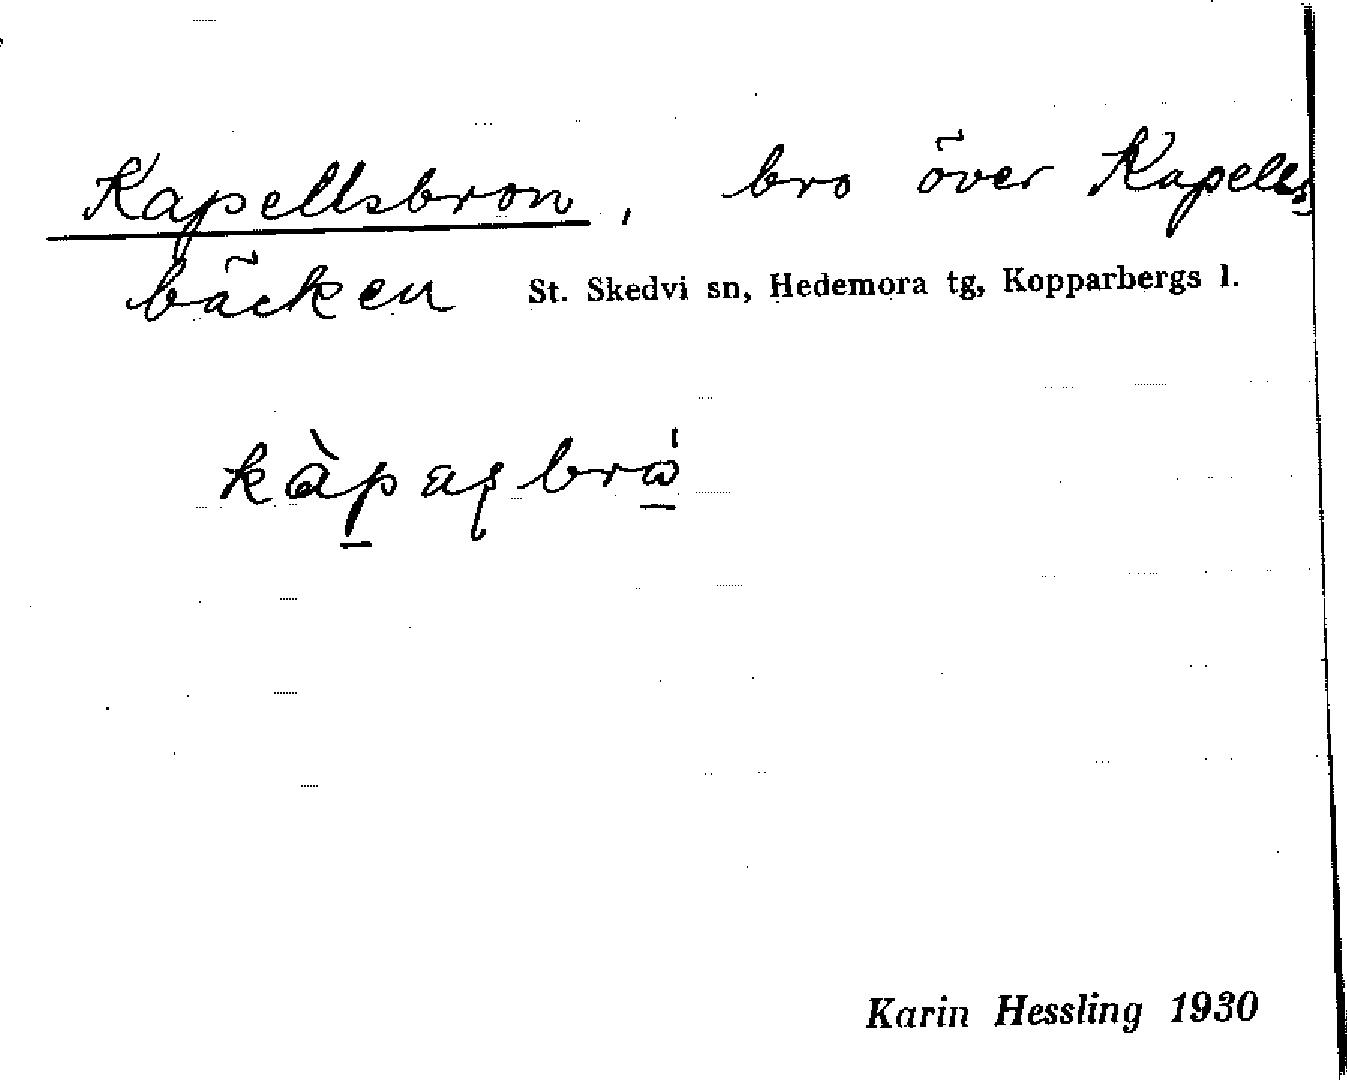 Kapellsbron, bro över Kapells
bäcken St. Skedvi sn, Hedemora tg, Kopparbergs l.
Karin Hessling 1930